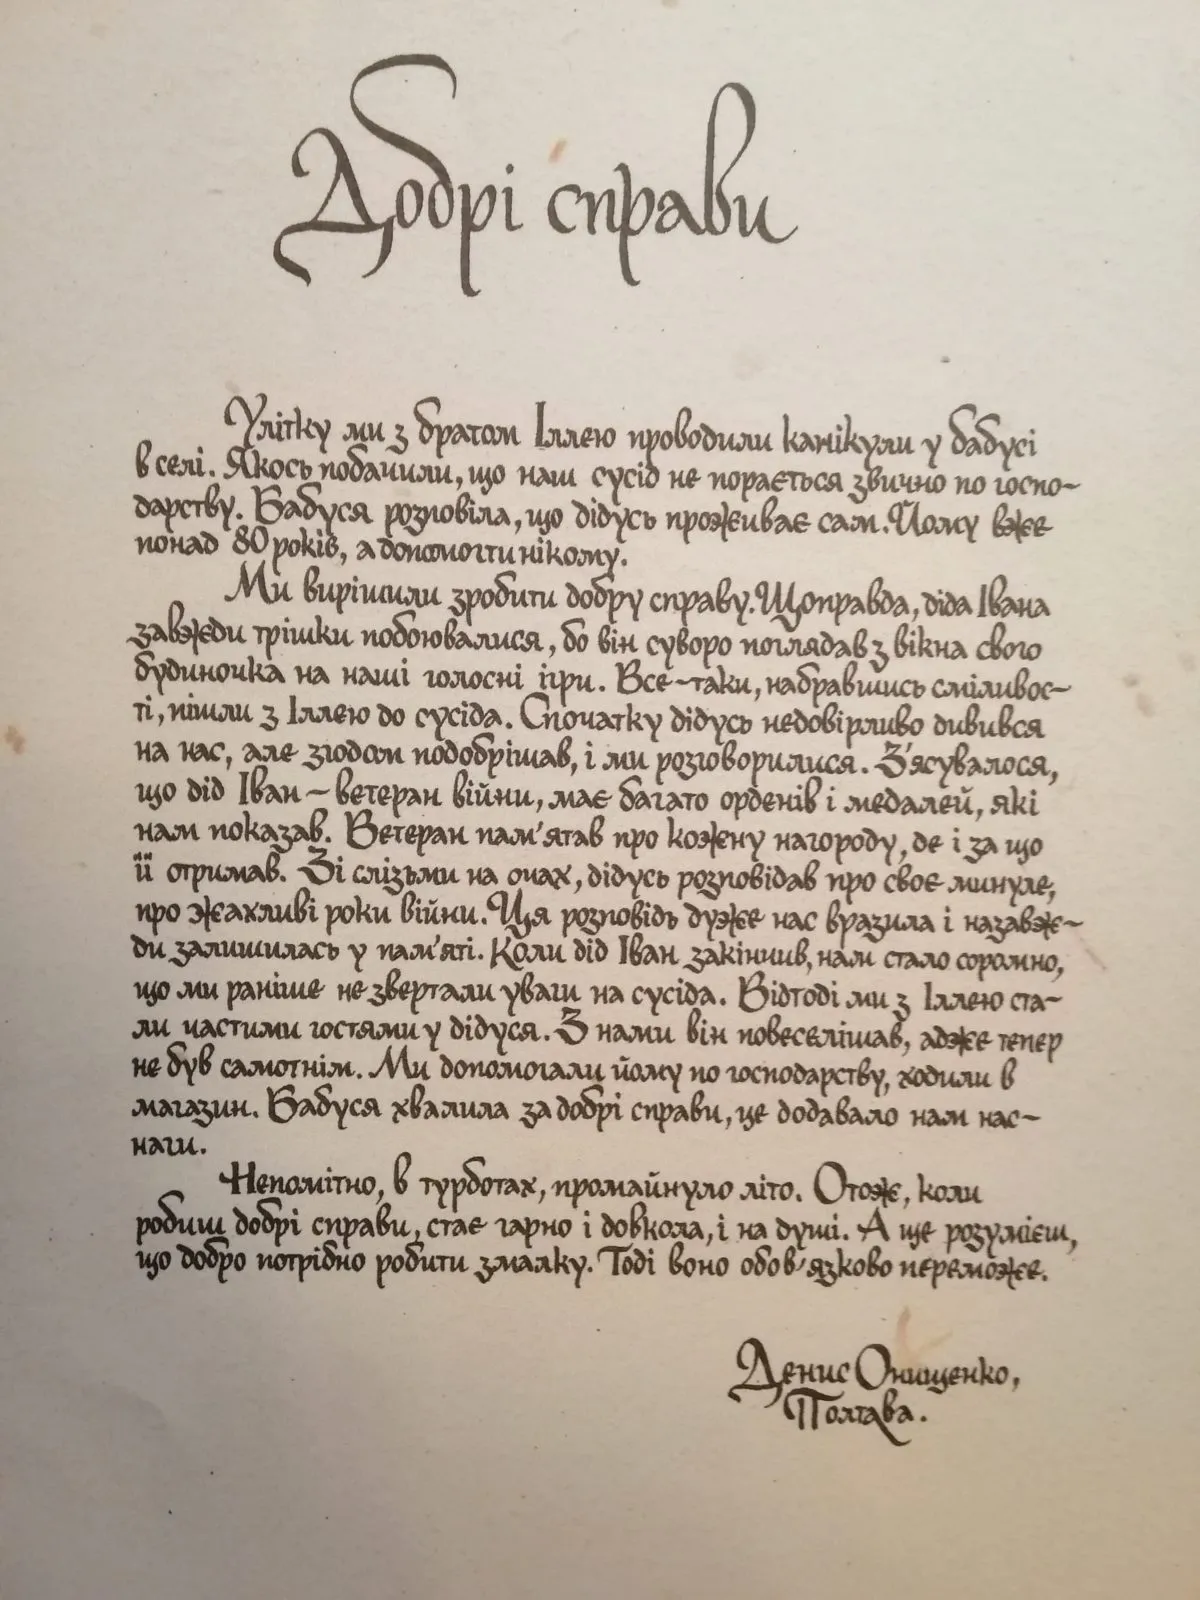 Добрі справи
Улітку ми з братом Іллею проводили канікули у бабусі
в селі. Якось побачили, що наш сусід не порається звично по госпо-
дарству. Бабуся розповіла, що дідусь проживає сам. Йому вже
понад 80 років, а допомогти нікому.
Ми вирішили зробити добру справу. Щоправда, діда Івана
завжди трішки побоювалися, бо він суворо поглядав з вікна свого
будиночка на наші голосні ігри. Все-таки, набравшись сміливос-
ті, пішли з Іллею до сусіда. Спочатку дідусь недовірливо дивився
на нас, але згодом подобрішав, і ми розговорилися. З'ясувалося,
що дід Іван - ветеран війни, має багато орденів і медалей, які
нам показав. Ветеран пам'ятав про кожену нагороду, де і за що
її отримав. Зі слізьми на очах, дідусь розповідав про своє минуле,
про жахливі роки війни. Ця розповідь дуже нас вразила і назавж-
ди залишилась у пам'яті. Коли дід Іван закінчив, нам стало соромно,
що ми раніше не звертали уваги на сусіда. Відтоді ми з Іллею ста-
ли частими гостями у дідуся. З нами він повеселішав, адже тепер
не був самотнім. Ми допомогали йому по господарству, ходили в
магазин. Бабуся хвалила за добрі справи, це додавало нам нас-
наги.
Непомітно, в турботах, промайнуло літо. Отже, коли
робиш добрі справи, стає гарно і довкола, і на душі. А ще розумієш,
що добро потрібно робити змалку. Тоді воно обов'язково переможе.
Денис Онищенко,
Полтава.